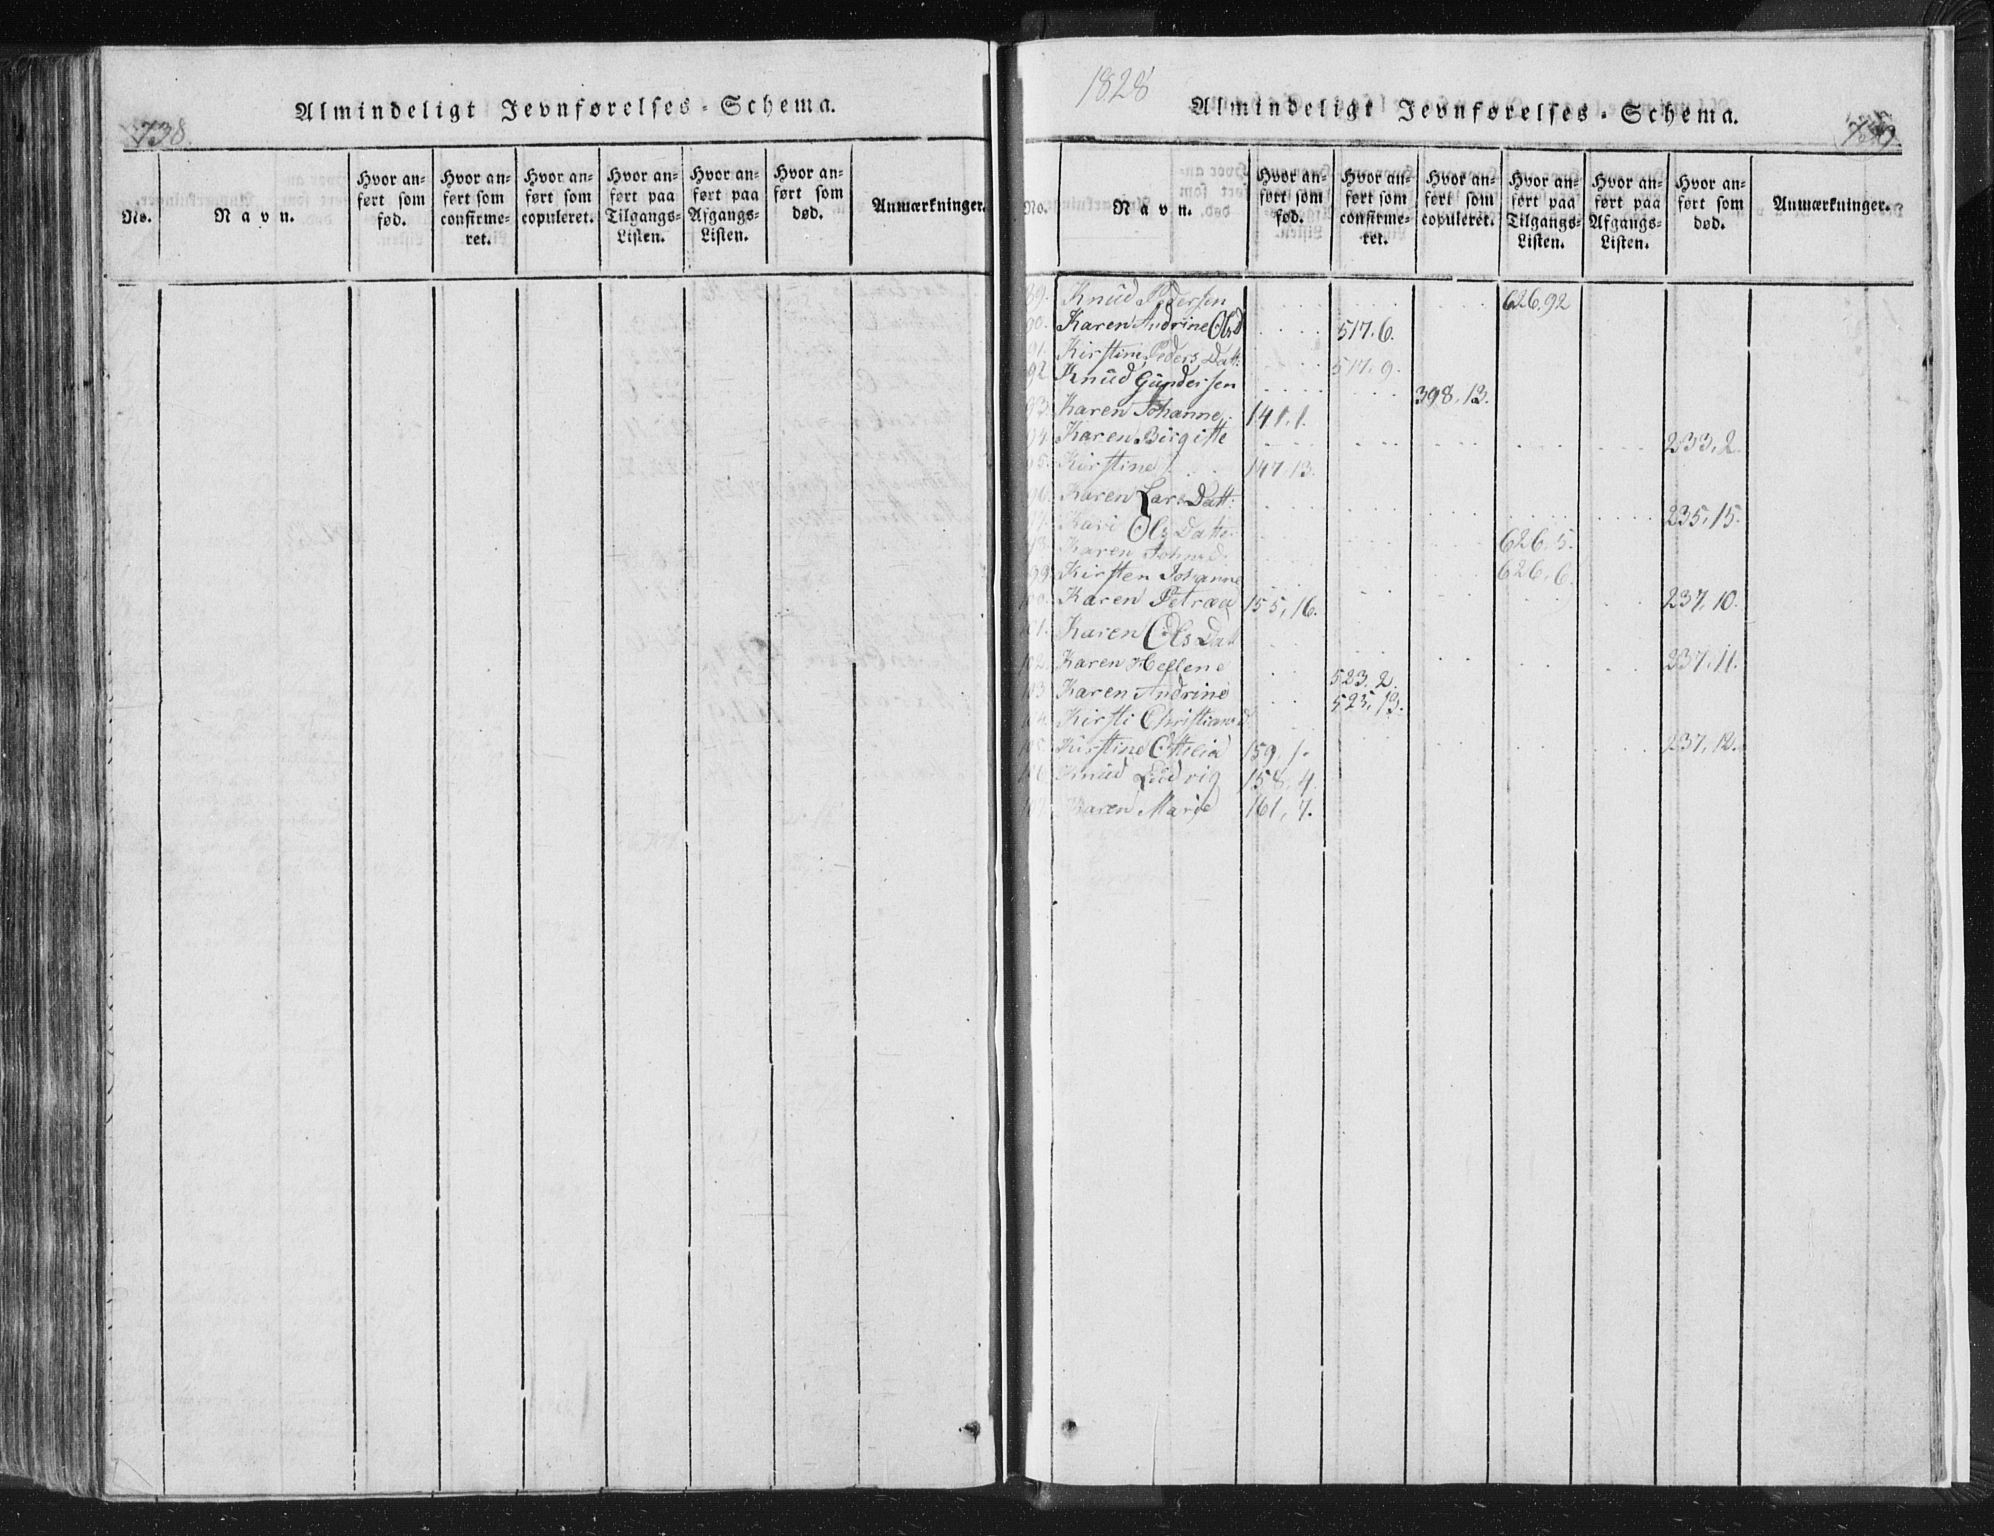 738.
Almindeligt Jevnførelses-Schema.
No.
Navn.
Hvor anført som fød.
Hvor anført som confirmeret.
Hvor anført som copuleret.
Hvor anført paa Tilgangs-Listen.
Hvor anført paa Afgangs-Listen.
Hvor anført som død.
Anmærkninger.
1828
Almindeligt Jevnførelses-Schema.
739.
No.
Navn.
Hvor anført som fød.
Hvor anført som confirmeret.
Hvor anført som copuleret.
Hvor anført paa Tilgangs-Listen.
Hvor anført paa Afgangs-Listen.
Hvor anført som død.
Anmærkninger.
89. Knud Pedersen 626.92
90. Karen Andrine Olsd 517.6.
91. Kirstine Peders Datt. 517.9.
92 Knud Gundersen 398.13.
93. Karen Johanne 141.1.
94. Karen Birgitte 233.2.
95. Kirstine 147.13.
96. Karen Lars Datt. 235.15.
97. Kari Ols Datt. 626.5.
98. Karen Johnsd. 626.6.
99 Kirsten Johanne
100. Karen Petraa 155,16. 237.10.
101. Karen Ols Datt
102. Karen Hellene 523.2. 237.11.
103 Karen Andrine 525.13.
104. Kirsti Christiansd. 237.12.
105. Kirstine Ottilia 159.1.
106 Knud Ludvig 158.4.
107 Karen Marie 161,7.